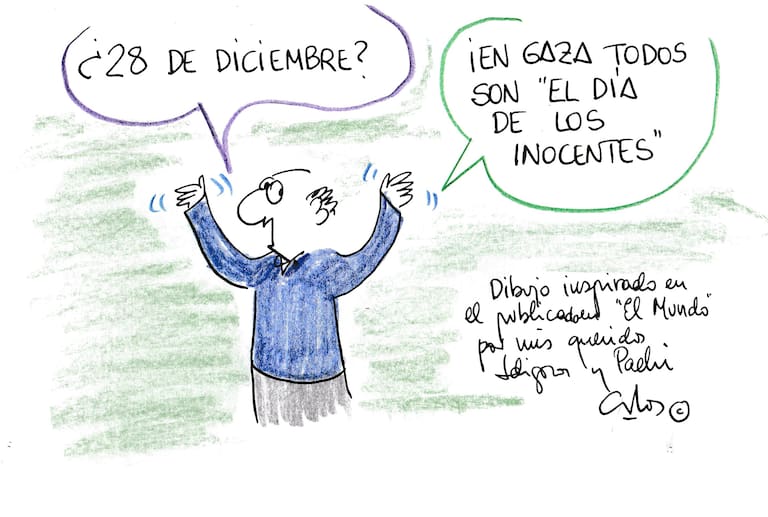 ¿28 DE DICIEMBRE?
¡EN GAZA TODOS
SON "EL DÍA
DE LOS
INOCENTES"
Dibujo inspirado en
el publicado en "El Mundo"
por mis queridos
y Pachi
©